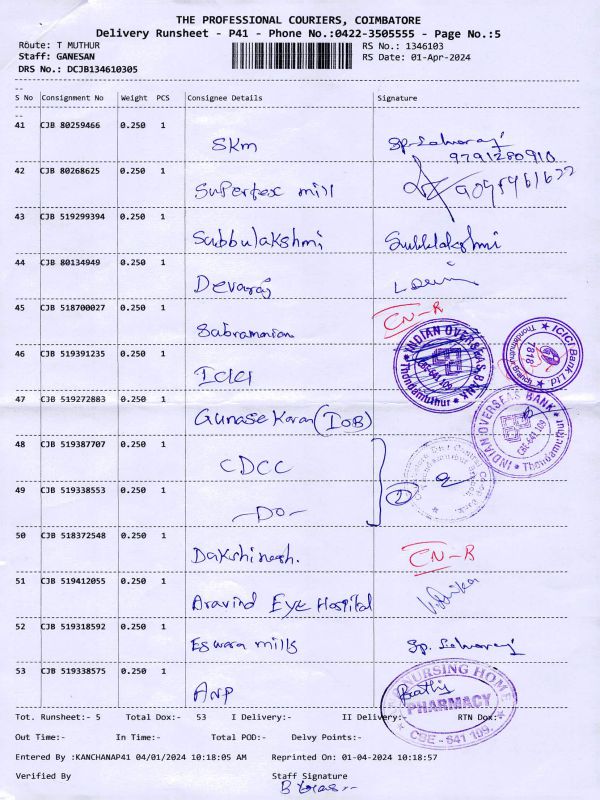 THE PROFESSIONAL COURIERS, COIMBATORE
Delivery Runsheet - P41 - Phone No.:0422-3505555 - Page No.:5
Route: T MUTHUR RS No.: 1346103
Staff: GANESAN RS Date: 01-Apr-2024
DRS No.: DCJB134610305
S No Consignment No Weight PCS Consignee Details Signature
41 CJB 80259466 0.250 1 SKM
9791280910
42 CJB 80268625 0.250 1 Supertex mill
43 CJB 519299394 0.250 1 Subbulakshmi
44 CJB 80134949 0.250 1 Devaraj
45 CJB 518700027 0.250 1 CN-R
46 CJB 519391235 0.250 1 ICICI
INDIAN OVERSEAS BANK CBE-641 109 Thondamuthur
ICICI Bank Ltd 1818 Thondamuthur Branch
47 CJB 519272883 0.250 1 Gunasekaran (IOB)
INDIAN OVERSEAS BANK CBE-641 109 Thondamuthur
48 CJB 519387707 0.250 1 CDCC
49 CJB 519338553 0.250 1 -DO- 2
50 CJB 518372548 0.250 1 CN-R
51 CJB 519412055 0.250 1 Aravind Eye Hospital
52 CJB 519318592 0.250 1 Eswara mills
53 CJB 519338575 0.250 1 ANP
NURSING HOME PHARMACY CBE - 641 109.
Tot. Runsheet:- 5 Total Dox:- 53 I Delivery:- II Delivery:- RTN Dox:-
Out Time:- In Time:- Total POD:- Delvy Points:-
Entered By :KANCHANAP41 04/01/2024 10:18:05 AM Reprinted On: 01-04-2024 10:18:57
Verified By Staff Signature